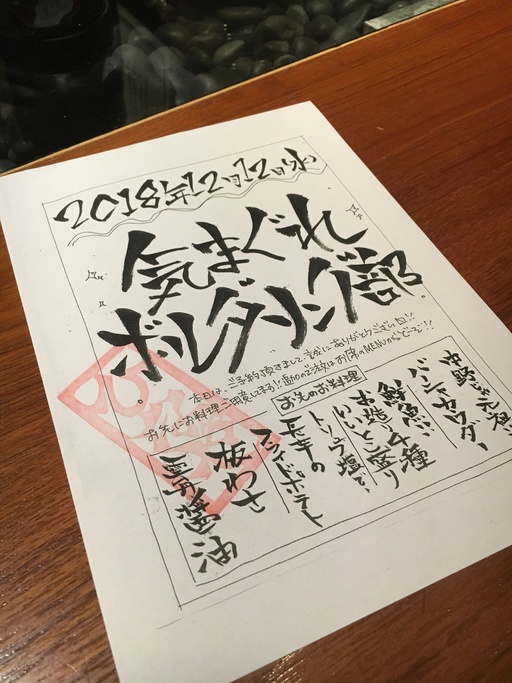 2018年12月12日(水)
気まぐれ
ボルダリング部
本日は、ご予約頂きまして誠にありがとうございます!!
お先にお料理ご用意してます!!追加のご注文はお席のMENUからどーぞ!!
お先のお料理
中野の元祖
バーニャカウダー
鮮魚の
お造り4種
いいとこ盛り
トリュフ塩で
長芋の
フライドポテト
板わさ
雲丹醤油